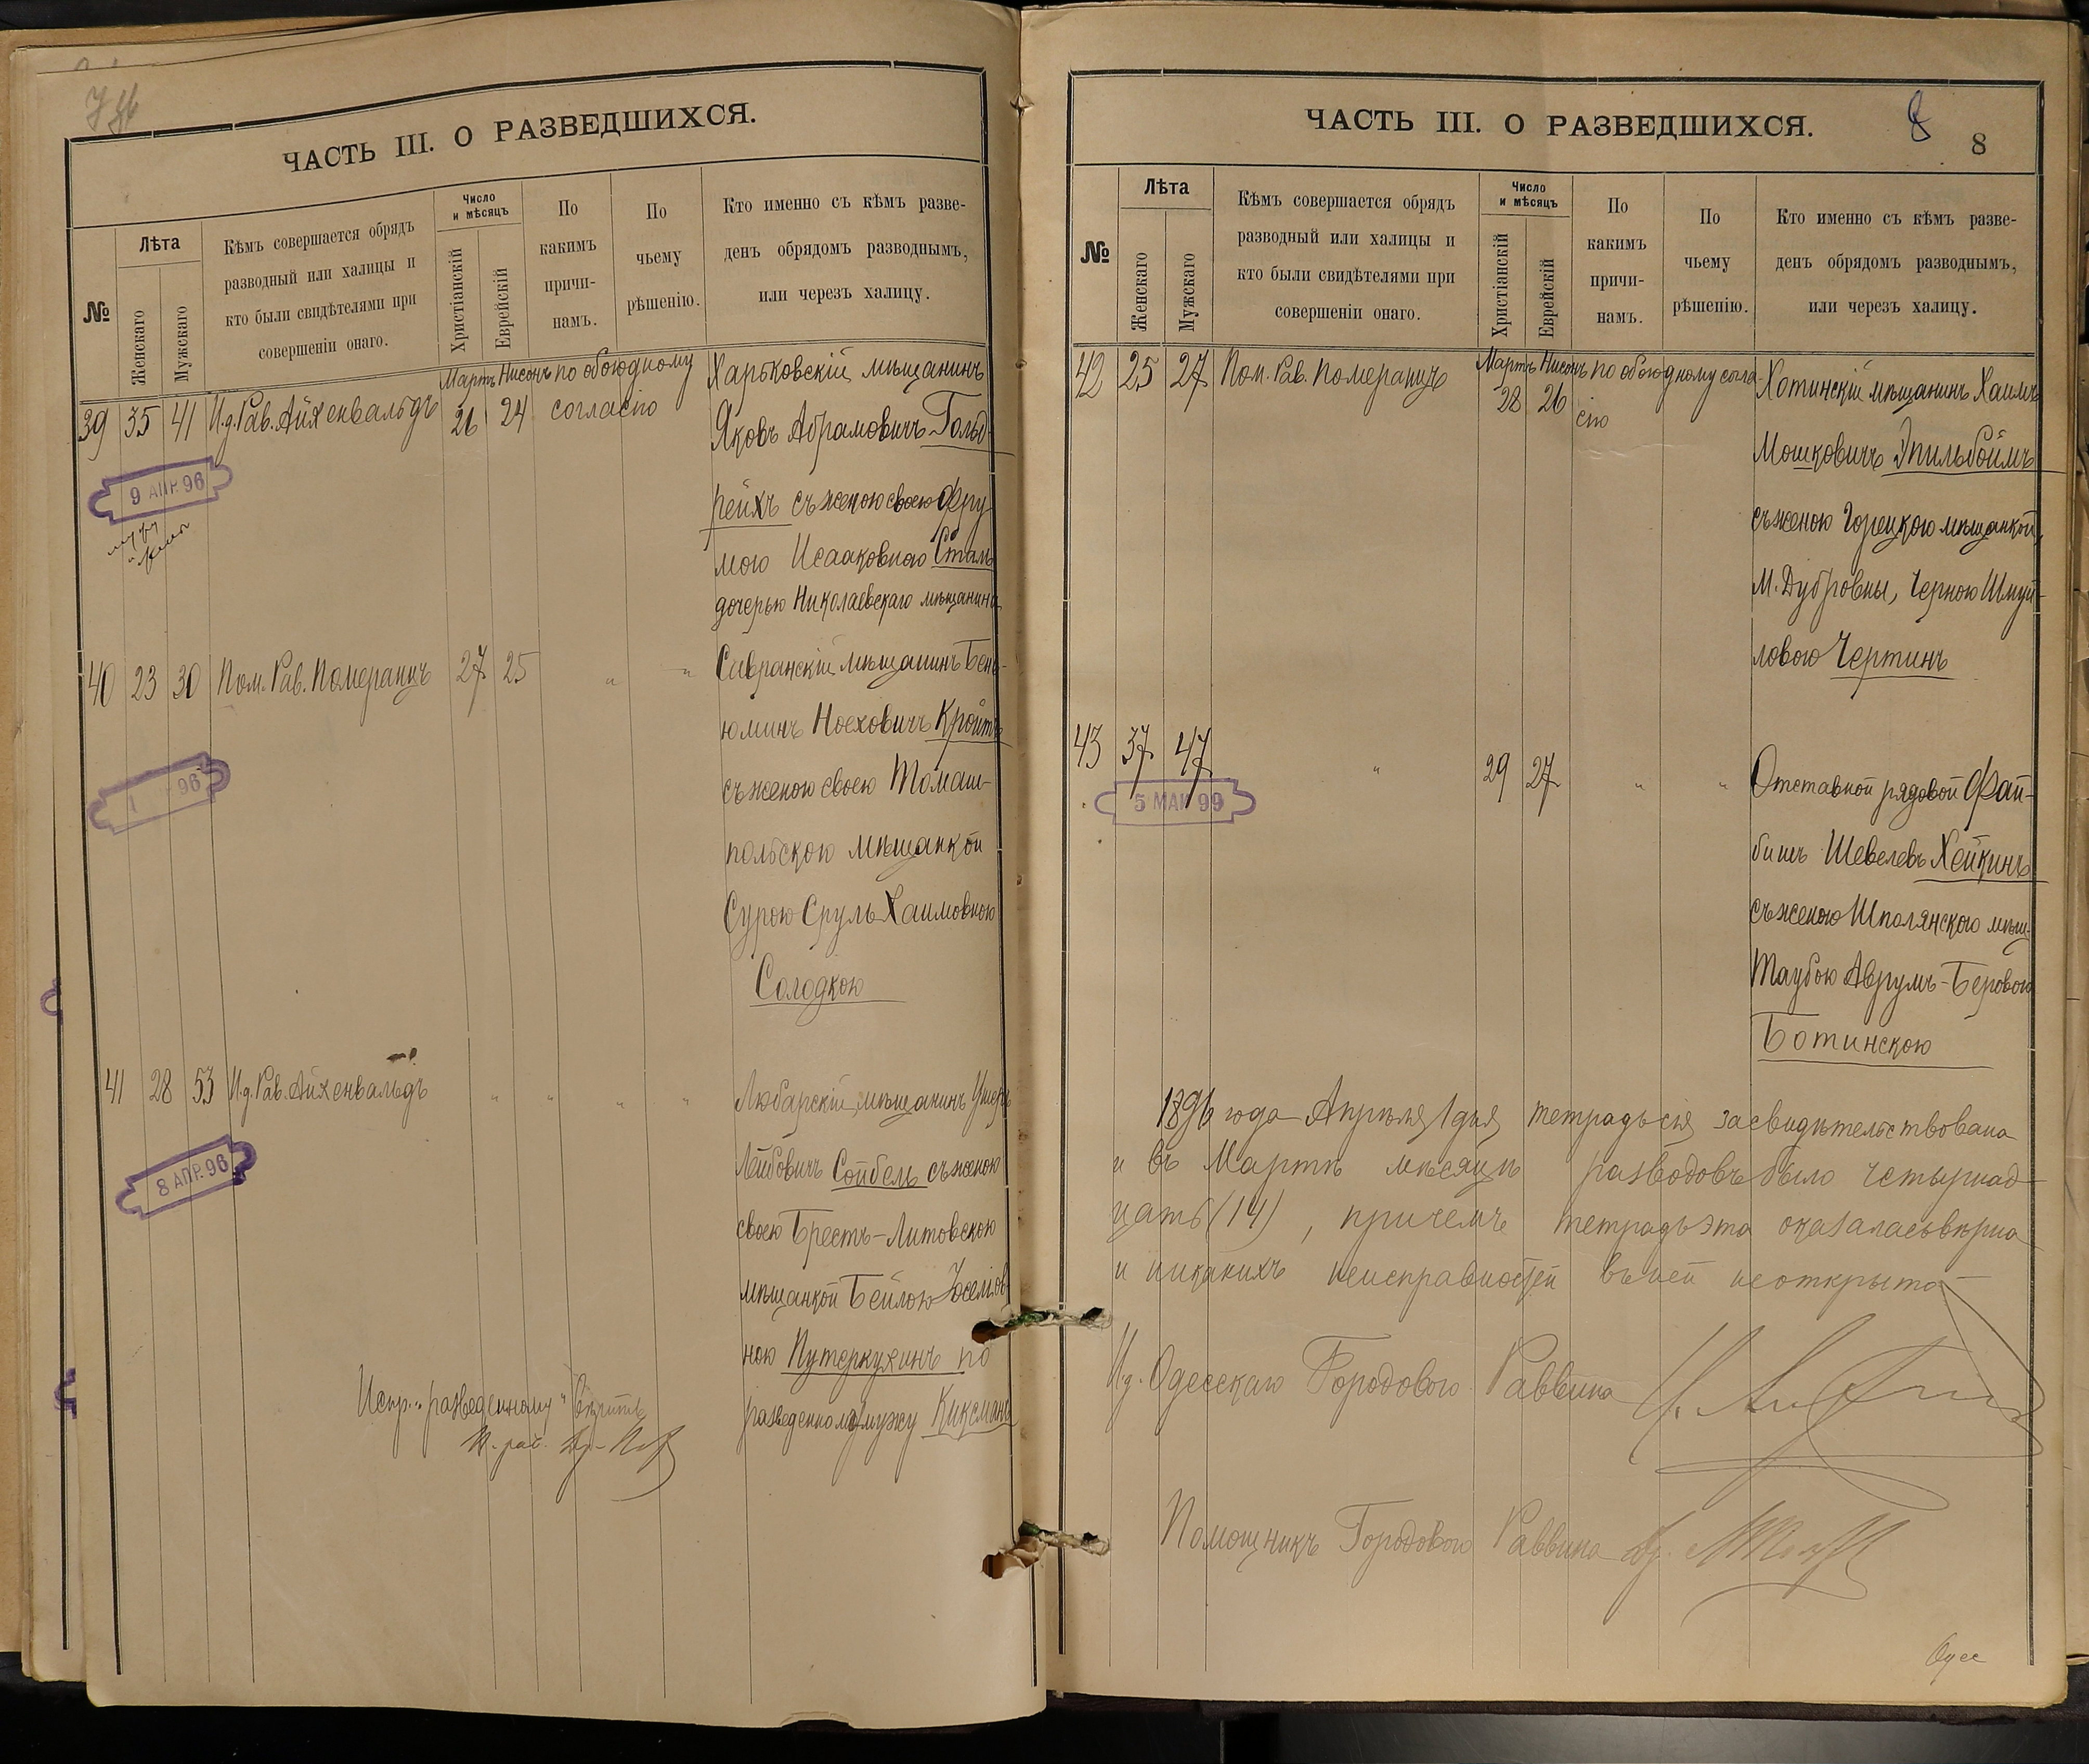 ЧАСТЬ III. О РАЗВЕДШИХСЯ.
№
Лѣта
Женскаго
Мужскаго
Кѣмъ совершается обрядъ
разводный или халицы и
кто были свидѣтелями при
совершеніи онаго.
Число
и мѣсяцъ
Христіанскій
Еврейскій
По
какимъ
причи-
намъ.
По
чьему
рѣшенію.
Кто именно съ кѣмъ разве-
денъ обрядомъ разводнымъ,
или черезъ халицу.
39 35 41 И.д. Рав. Айхенвальдъ Мартъ 26 Нисонъ 24 по обоюдному
согласію
Харьковскій мѣщанинъ
Яковъ Абрамовичъ Гольд-
рейхъ съ женою своею Фру
мою Исааковною
дочерью Николаевскаго мѣщанина
9 АПР. 96
40 23 30 Пом. Рав. Померанцъ 27 25 " "
Савранскій мѣщанинъ Бень-
юминъ Ноеховичъ Кройтъ
съ женою своею Томаш-
польскою мѣщанкой
Сурою Сруль-Хаимовною
Солодкою
96
41 28 53 И.д. Рав. Айхенвальдъ " " " "
Любарскій мѣщанинъ Ушеръ
Лейбовичъ Сойбель съ женою
своею Брестъ-Литовскою
мѣщанкой Бейлою Іоселіов-
ною Путеркухинъ по
разведенному мужу Киксманъ
8 АПР. 96
Испр. "разведенному"
ЧАСТЬ III. О РАЗВЕДШИХСЯ.
8
8
№
Лѣта
Женскаго
Мужскаго
Кѣмъ совершается обрядъ
разводный или халицы и
кто были свидѣтелями при
совершеніи онаго.
Число
и мѣсяцъ
Христіанскій
Еврейскій
По
какимъ
причи-
намъ.
По
чьему
рѣшенію.
Кто именно съ кѣмъ разве-
денъ обрядомъ разводнымъ,
или черезъ халицу.
42 25 27 Пом. Рав. Померанцъ Мартъ 28 Нисонъ 26 по обоюдному согла-
сію
Хотинскій мѣщанинъ Хаимъ
Мошковичъ Эпильбоймъ
съ женою Горецкою мѣщанкой
М. Дубровны, Черною Шмуй-
ловою Чертинъ
43 37 47 " 29 27 " "
Отставной рядовой Фай-
бишъ Шевелевъ Хейкинъ
съ женою Шполянскою мѣщ.
Таубою Аврумъ-Беровою
Ботинскою
5 МАЯ 99
1896 года Апрѣля 1 дня тетрадь сія засвидѣтельствована
и въ Мартѣ мѣсяцѣ разводовъ было четырнад-
цать (14), причемъ тетрадь эта оказалась вѣрна
и никакихъ неисправностей въ ней не открыто
И.д. Одесскаго Городового Раввина
Помощникъ Городового Раввина